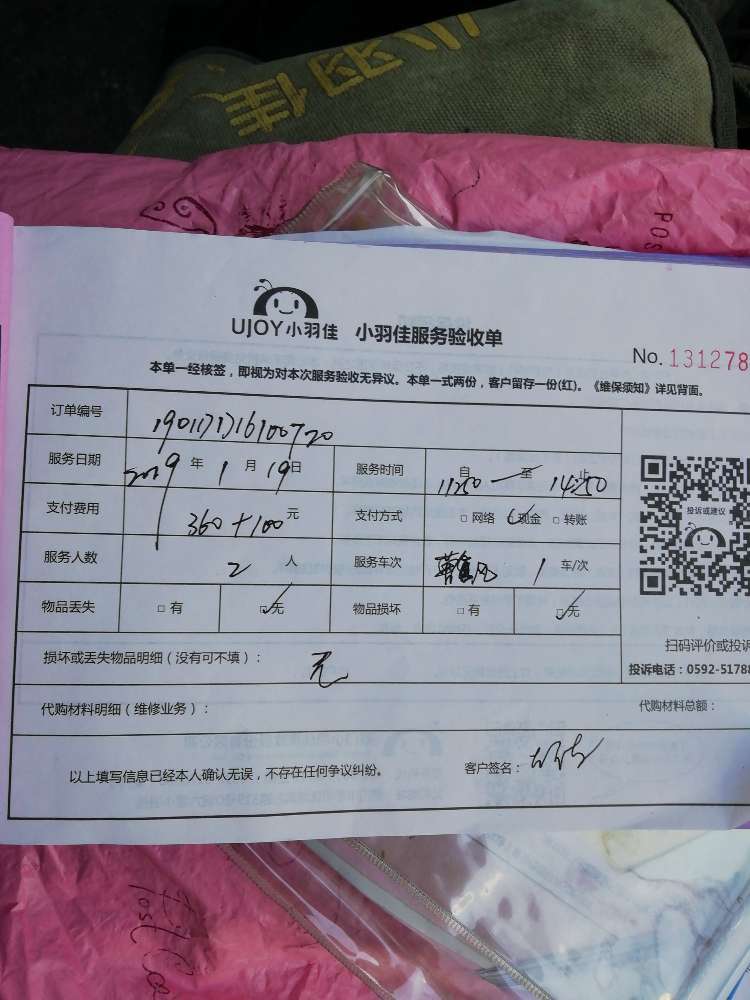 小羽佳
UJOY小羽佳 小羽佳服务验收单
No. 131278
本单一经核签，即视为对本次服务验收无异议。本单一式两份，客户留存一份(红)。《维保须知》详见背面。
订单编号
服务日期 2019 年 1 月 19 日 服务时间 自 11:50 至 14:50 止
支付费用 360+100 元 支付方式 □ 网络 □ 现金 □ 转账
服务人数 2 人 服务车次 1 车/次
物品丢失 □ 有 □ 无 物品损坏 □ 有 □ 无
投诉或建议
扫码评价或投诉
投诉电话：0592-5178
损坏或丢失物品明细（没有可不填）： 无
代购材料明细（维修业务）： 代购材料总额：
以上填写信息已经本人确认无误，不存在任何争议纠纷。 客户签名：